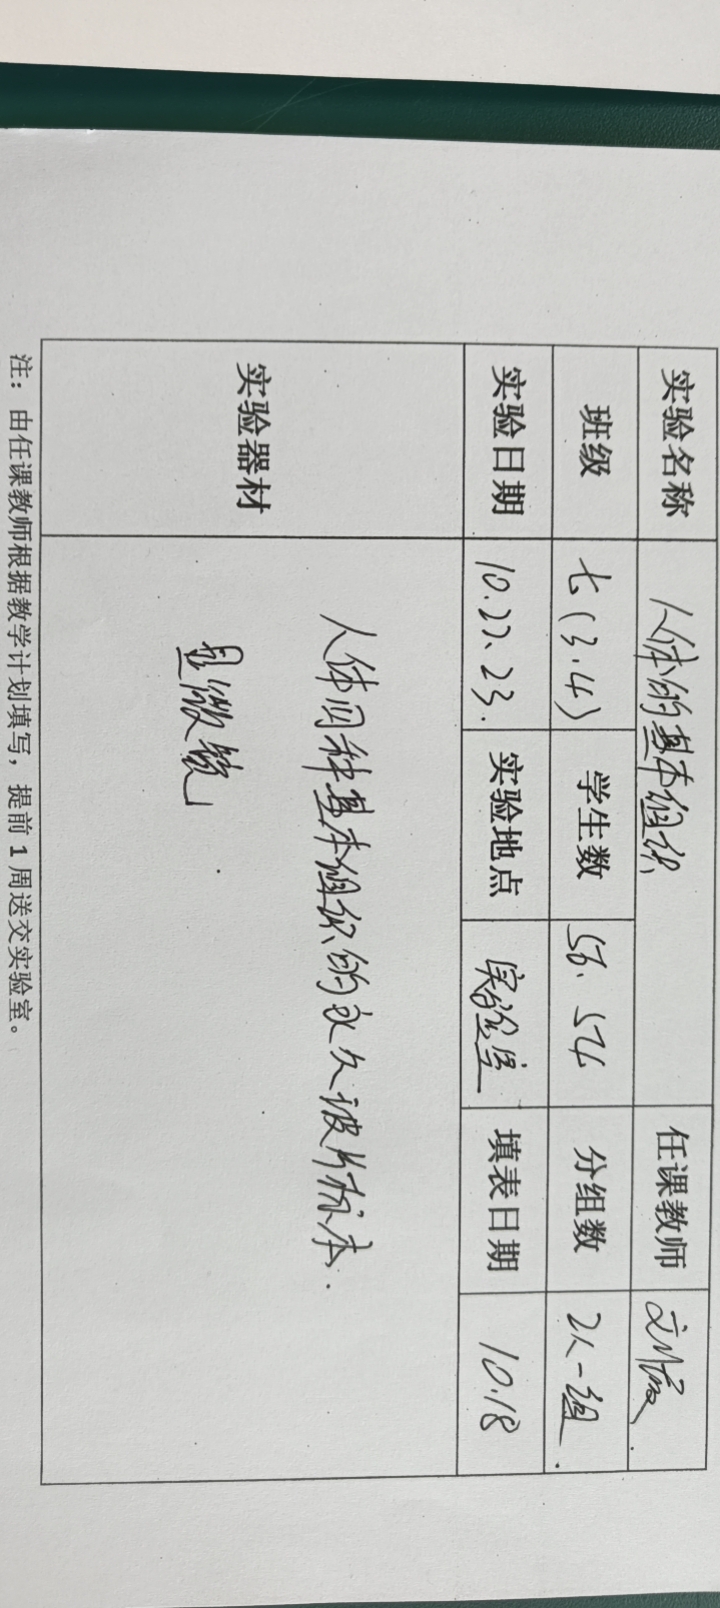 实验名称 人体的基本组织 任课教师
班级 七(3.4) 学生数 56、54 分组数 2人一组.
实验日期 10.22、23. 实验地点 实验室 填表日期 10.18
实验器材 人体四种基本组织的永久玻片标本.
显微镜
注：由任课教师根据教学计划填写，提前 1 周送交实验室。